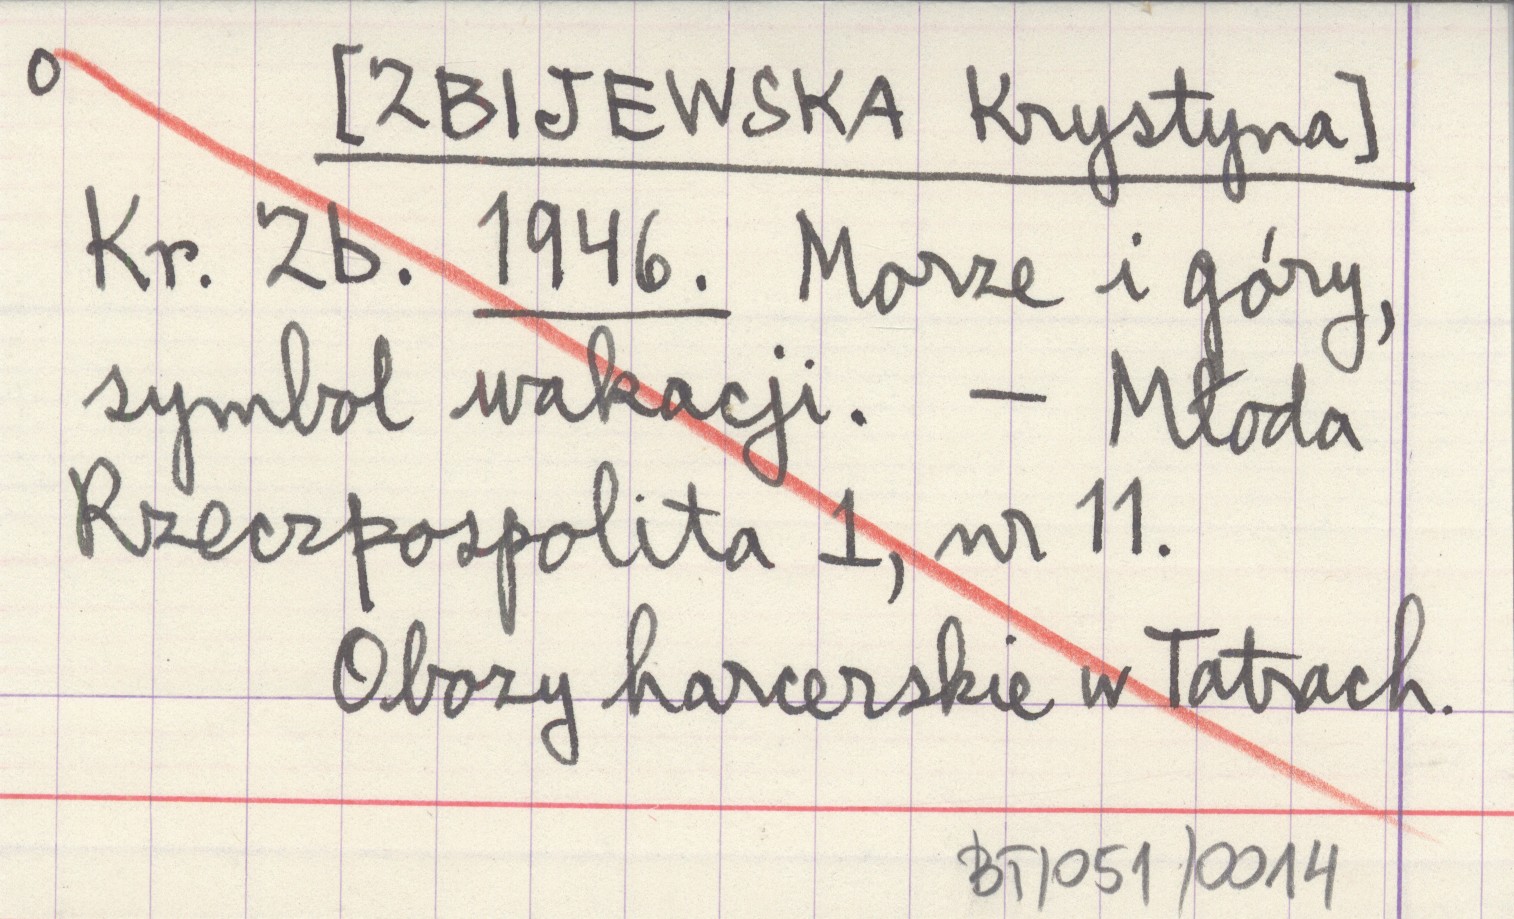 o [ZBIJEWSKA Krystyna]
Kr. Zb. 1946. Morze i góry,
symbol wakacji. — Młoda
Rzeczpospolita 1, nr 11.
Obozy harcerskie w Tatrach.
BT/051/0014